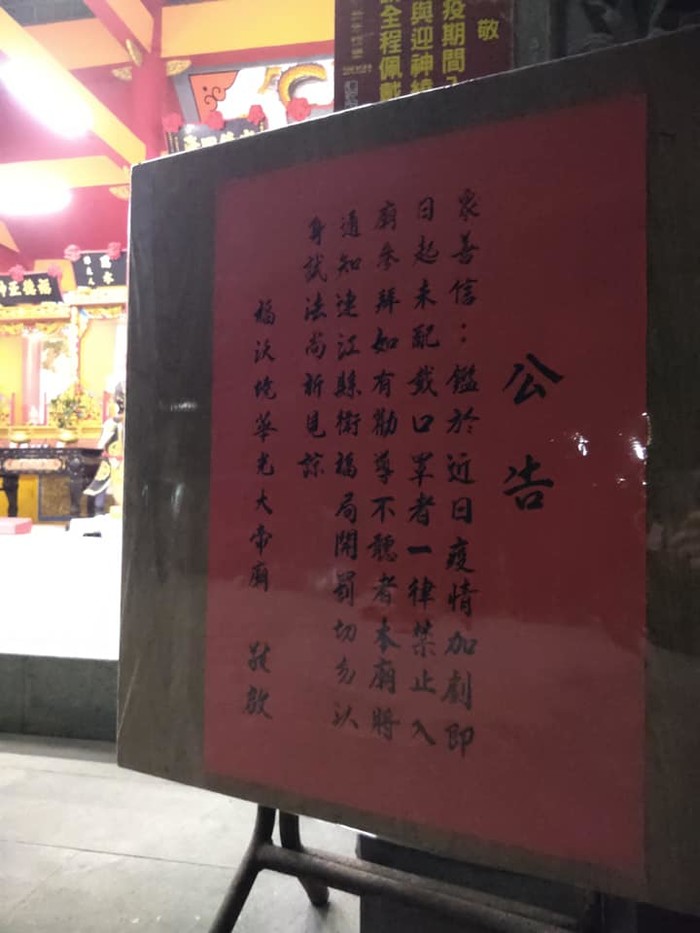 公告
衆善信：鑑於近日疫情加劇即
日起未配戴口罩者一律禁止入
廟參拜如有勸導不聽者本廟將
通知連江縣衛福局開罰切勿以
身試法尚祈見諒
福沃境華光大帝廟 敬啟
敬
疫期間入
與迎神繞
全程佩戴
福德正神